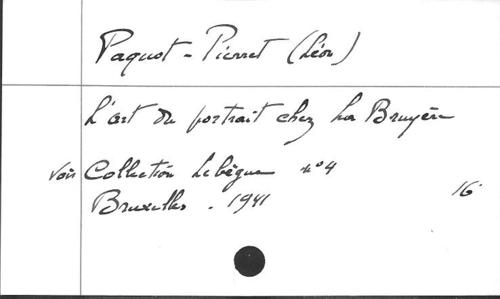 Paquot-Pierret (Léon)
L'art du portrait chez La Bruyère
Voir Collection Lebègue n° 4
Bruxelles. 1941 16°